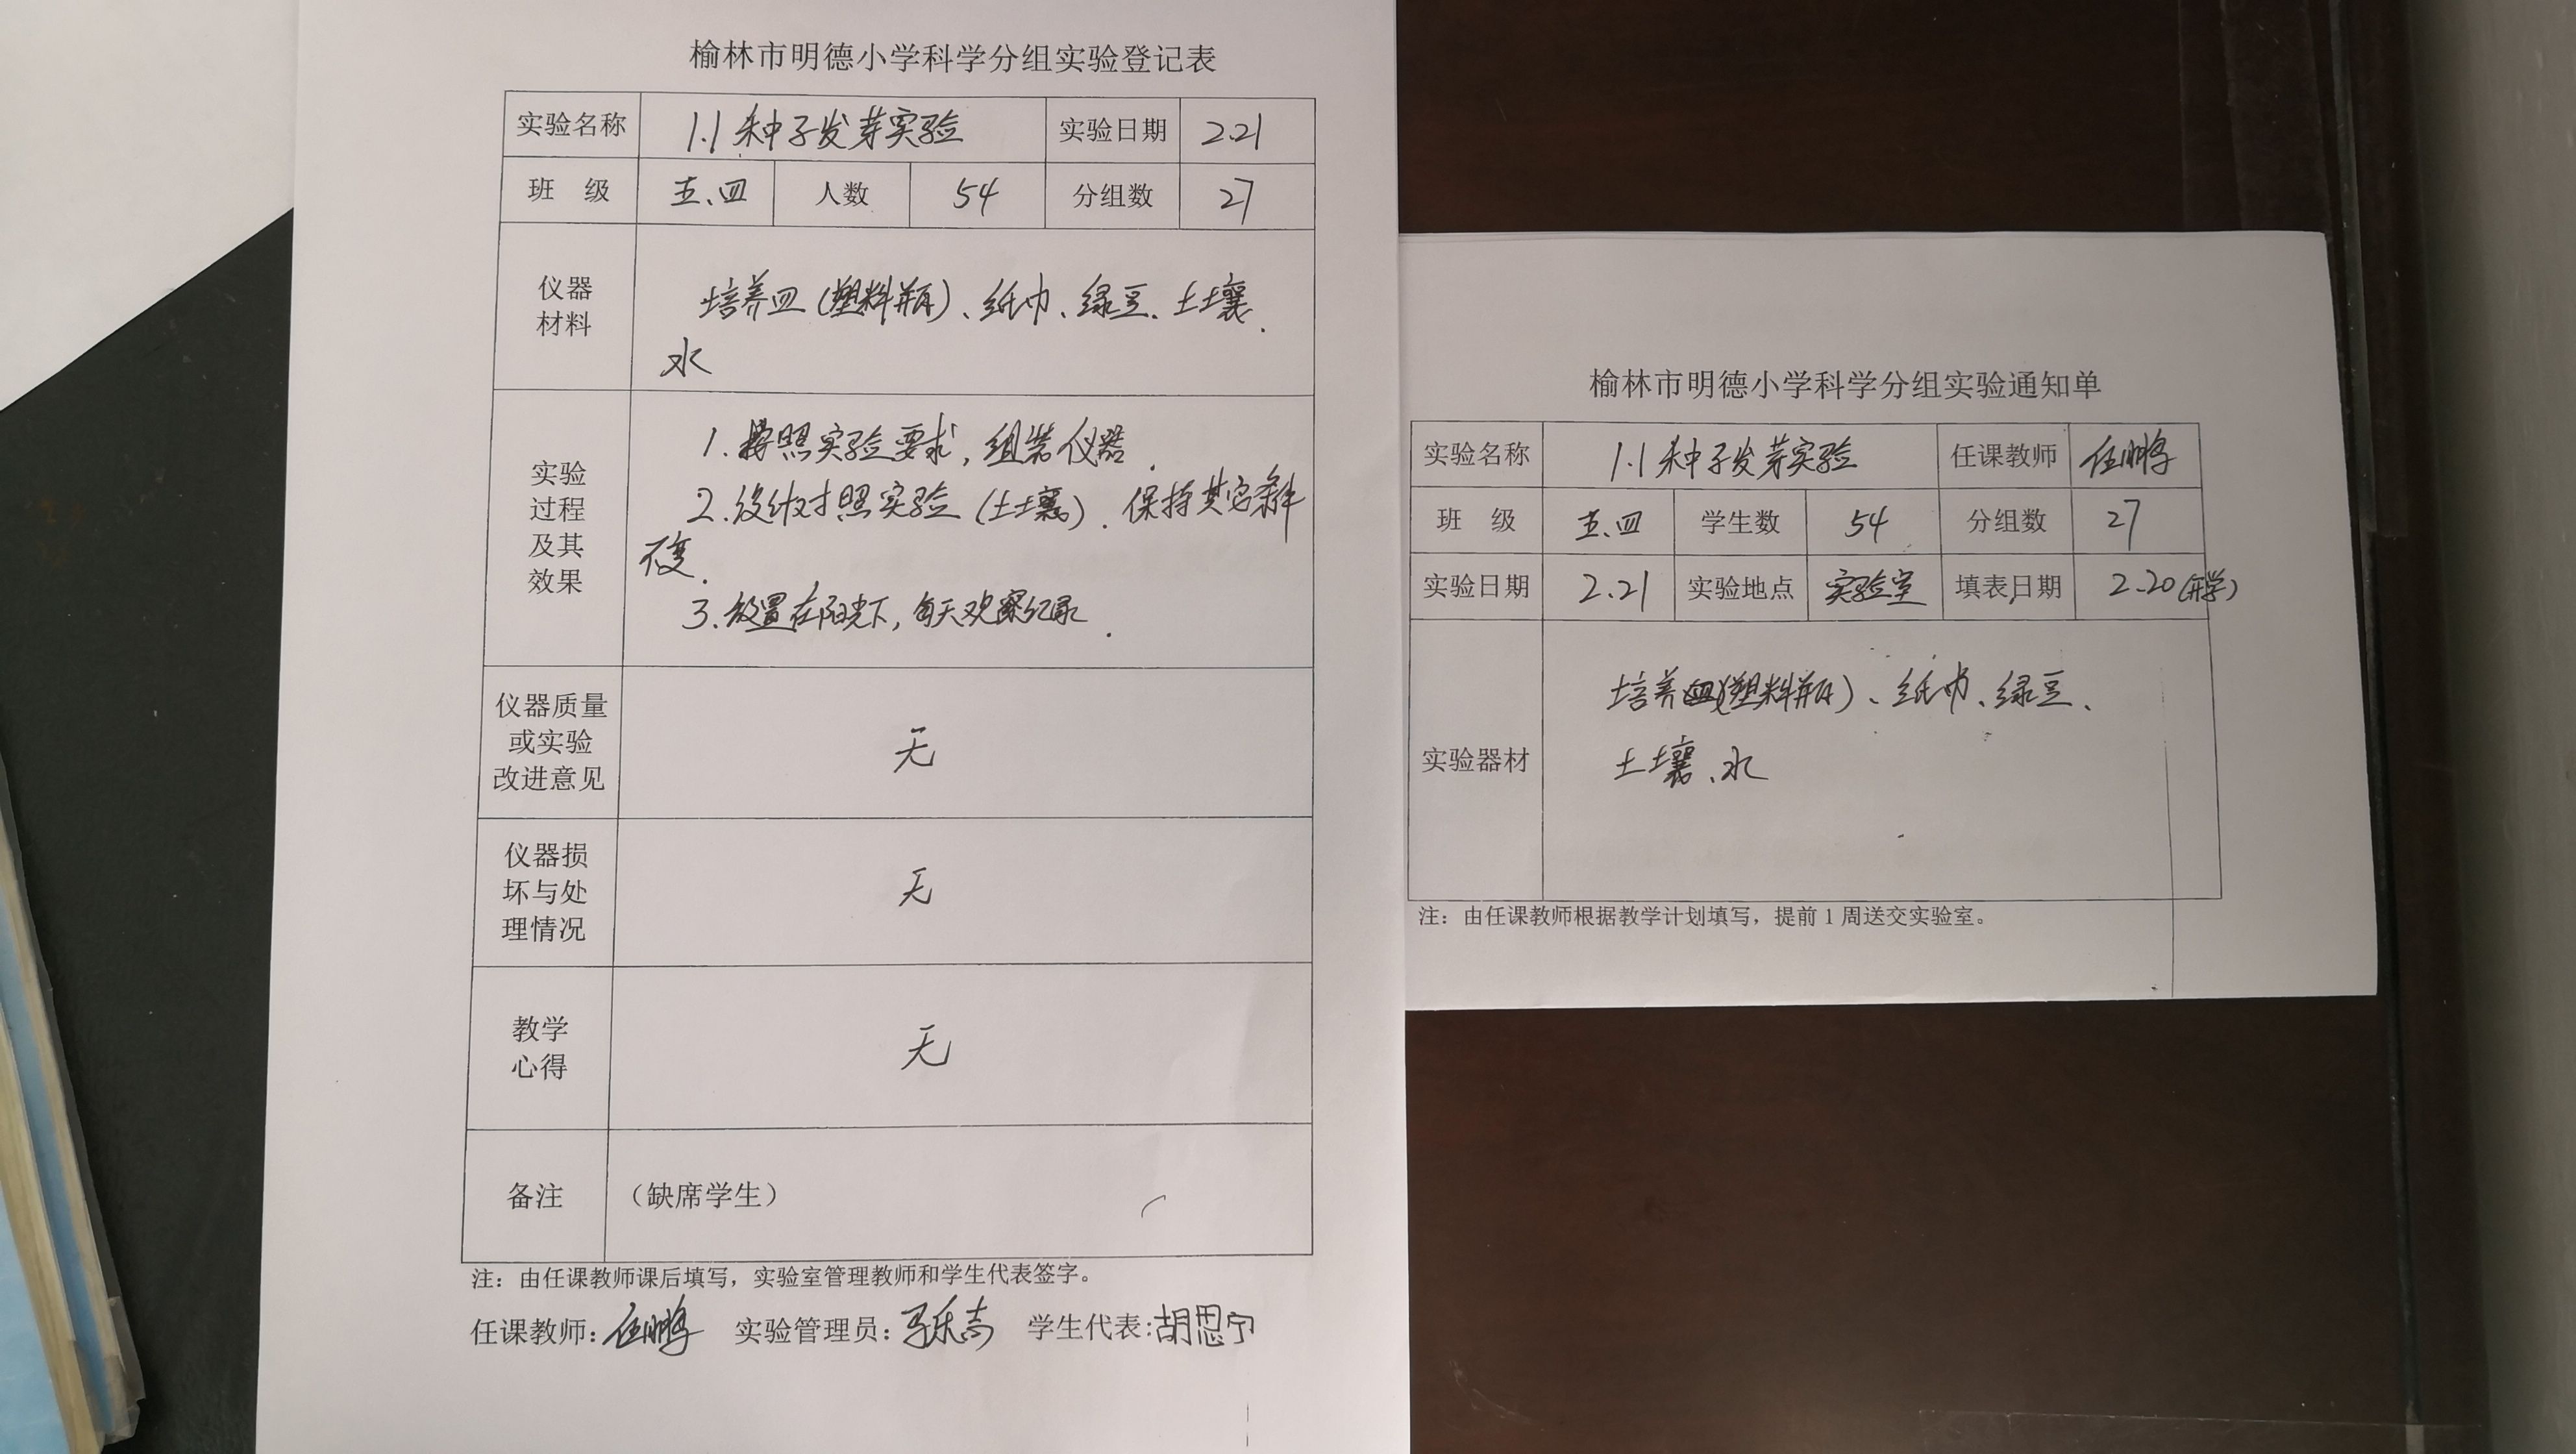 榆林市明德小学科学分组实验登记表
实验名称 1.1种子发芽实验 实验日期 2.21
班 级 五、四 人数 54 分组数 27
仪器
材料
培养皿(塑料瓶)、纸巾、绿豆、土壤、
水
实验
过程
及其
效果
1.按照实验要求,组装仪器.
2.设计对照实验(土壤).保持其它条件
不变.
3.放置在阳光下,每天观察纪录.
仪器质量
或实验
改进意见
无
仪器损
坏与处
理情况
无
教学
心得
无
备注 (缺席学生)
注:由任课教师课后填写,实验室管理教师和学生代表签字。
任课教师:任鹏 实验管理员: 学生代表:胡思宁
榆林市明德小学科学分组实验通知单
实验名称 1.1种子发芽实验 任课教师 任鹏
班 级 五、四 学生数 54 分组数 27
实验日期 2.21 实验地点 实验室 填表日期 2.20(开学)
实验器材
培养皿(塑料瓶)、纸巾、绿豆、
土壤、水
注:由任课教师根据教学计划填写,提前1周送交实验室。